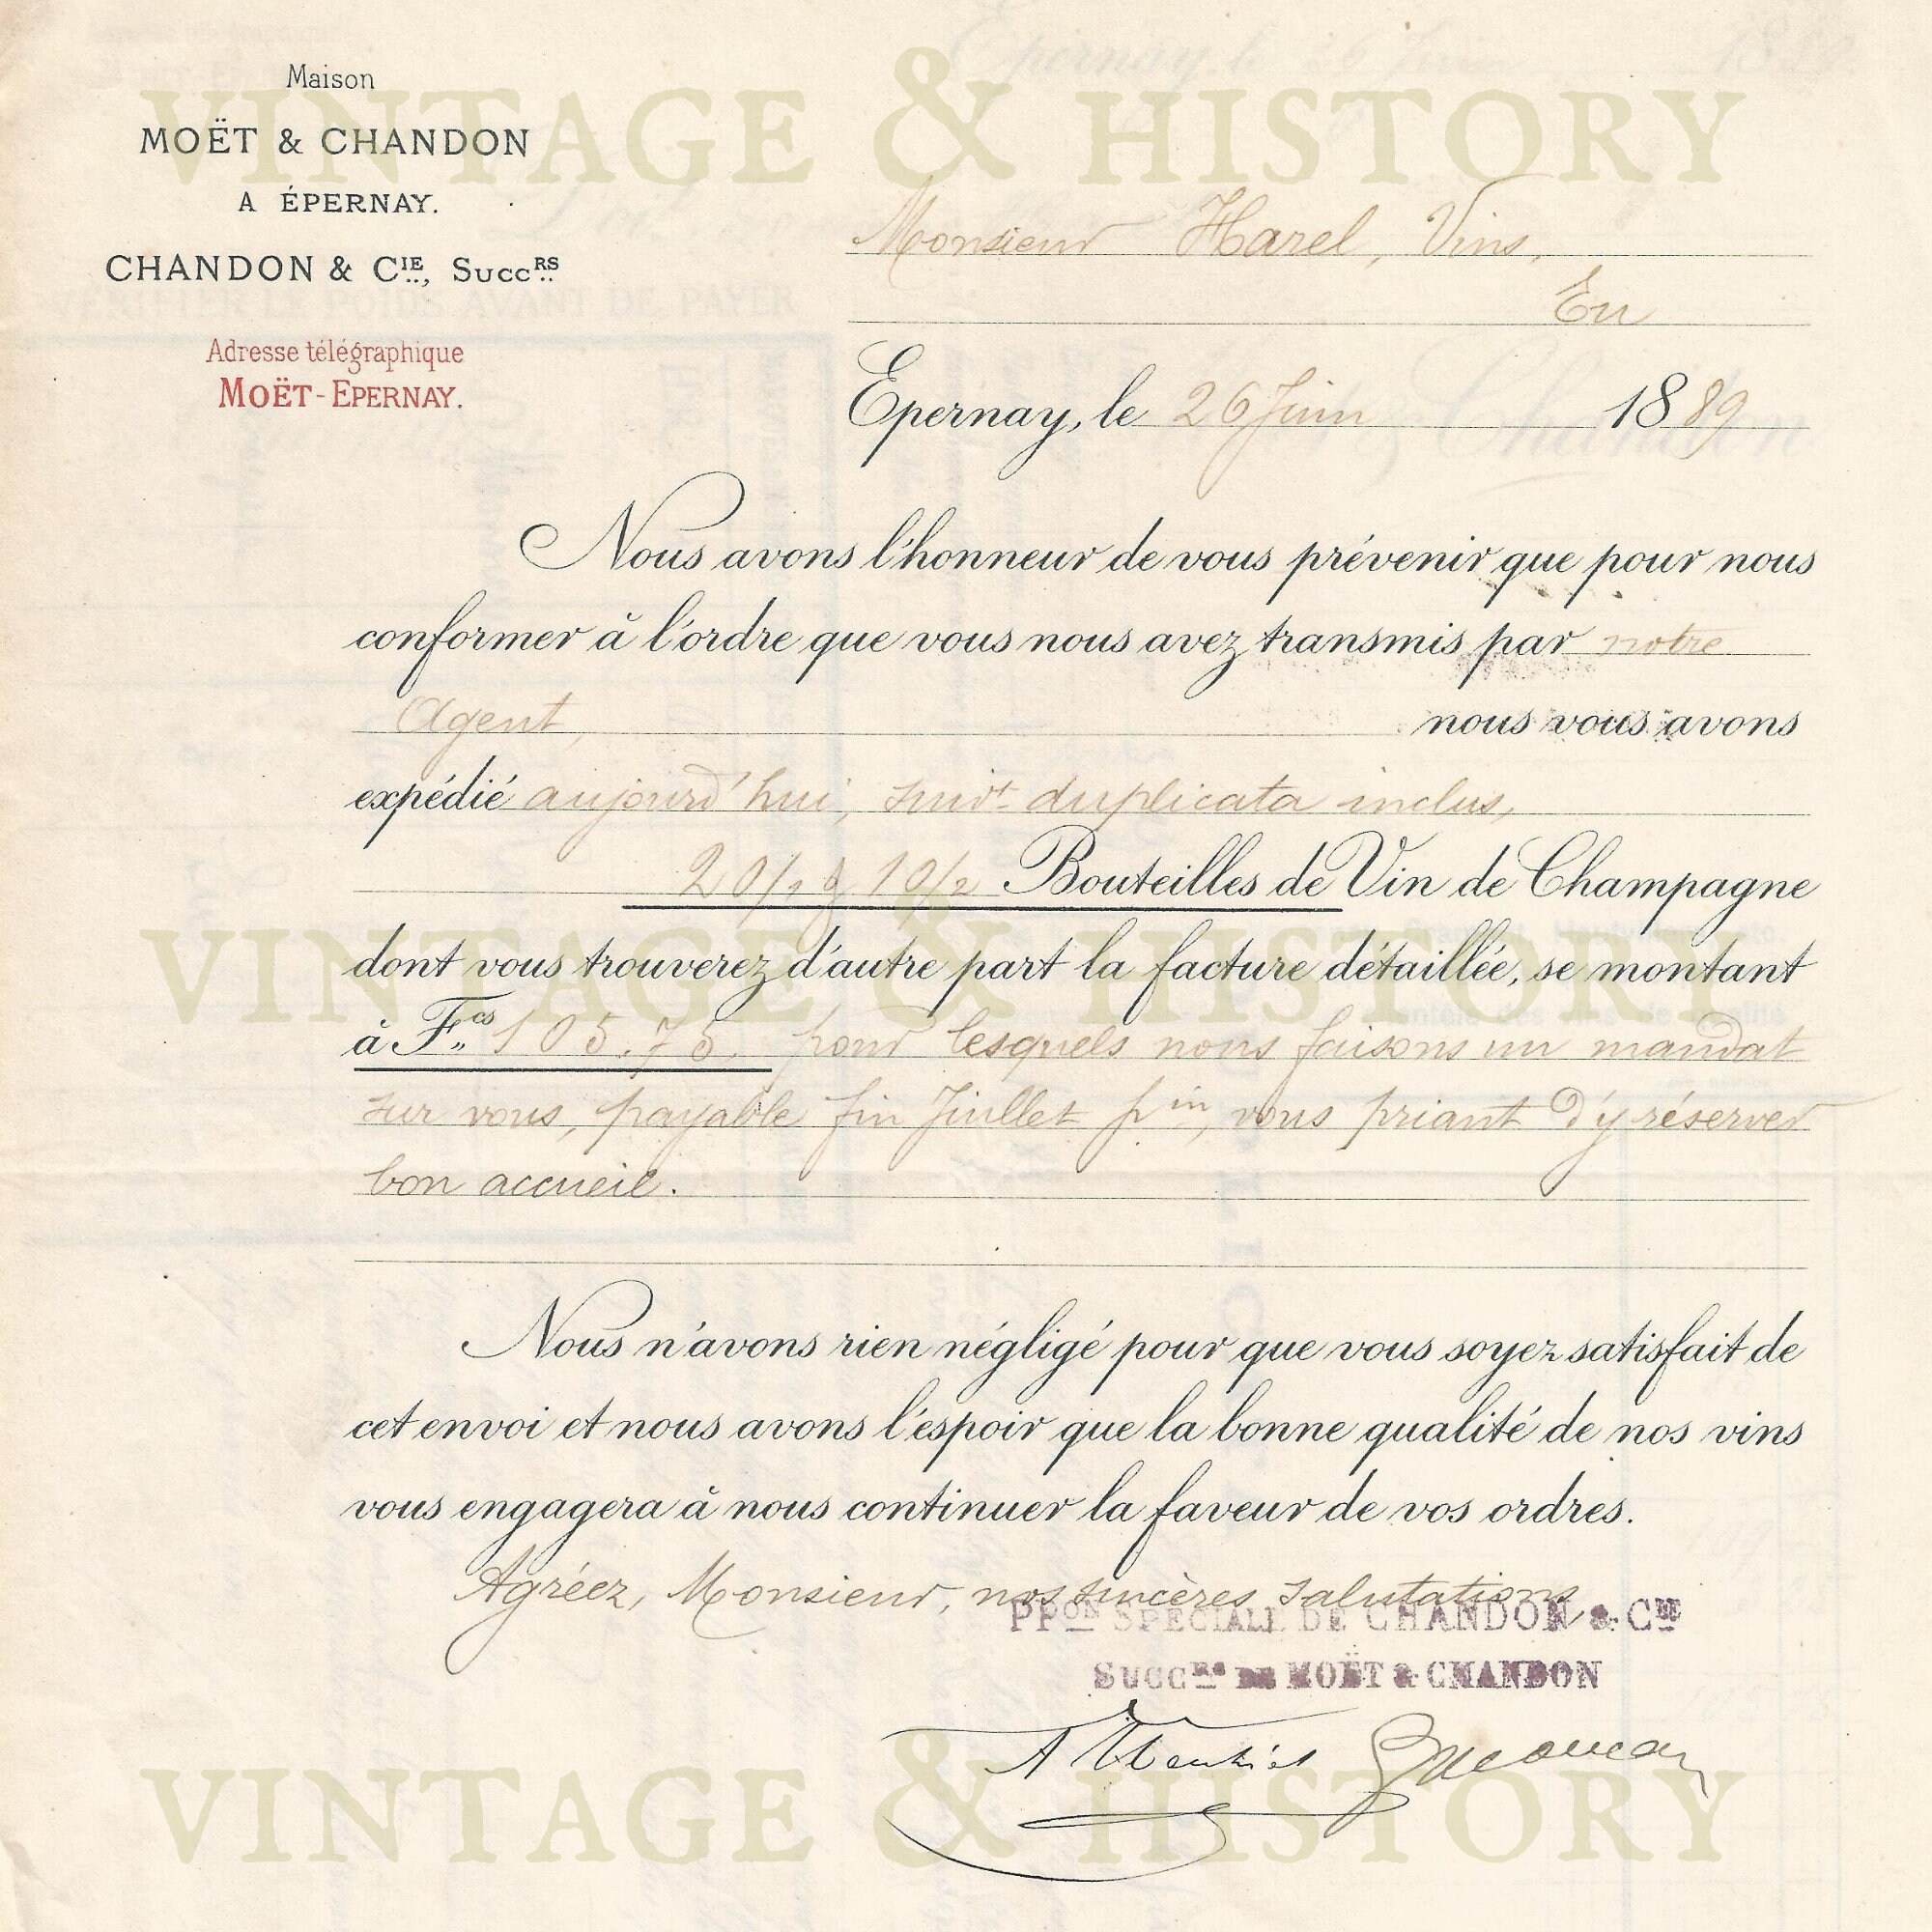 Maison
MOËT & CHANDON
A ÉPERNAY.
CHANDON & CIE, SuccRS
Adresse télégraphique
MOËT-EPERNAY.
VINTAGE & HISTORY
Monsieur Harel, Vins,
Eu
Epernay, le 26 Juin 1889
VÉRIFIER LE POIDS AVANT DE PAYER
Nous avons l'honneur de vous prévenir que pour nous
conformer à l'ordre que vous nous avez transmis par notre
Agent, nous vous avons
expédié aujourd'hui, suivt duplicata inclus,
20/1 & 10/2 Bouteilles de Vin de Champagne
VINTAGE & HISTORY
dont vous trouverez d'autre part la facture détaillée, se montant
à Fcs 105.75. pour lesquels nous faisons un mandat
sur vous, payable fin Juillet pin, vous priant d'y réserver
bon accueil.
Nous n'avons rien négligé pour que vous soyez satisfait de
cet envoi et nous avons l'espoir que la bonne qualité de nos vins
vous engagera à nous continuer la faveur de vos ordres.
Agréez, Monsieur, nos sincères salutations
PPON SPÉCIALE DE CHANDON & CIE
SUCCRS DE MOËT & CHANDON
VINTAGE & HISTORY